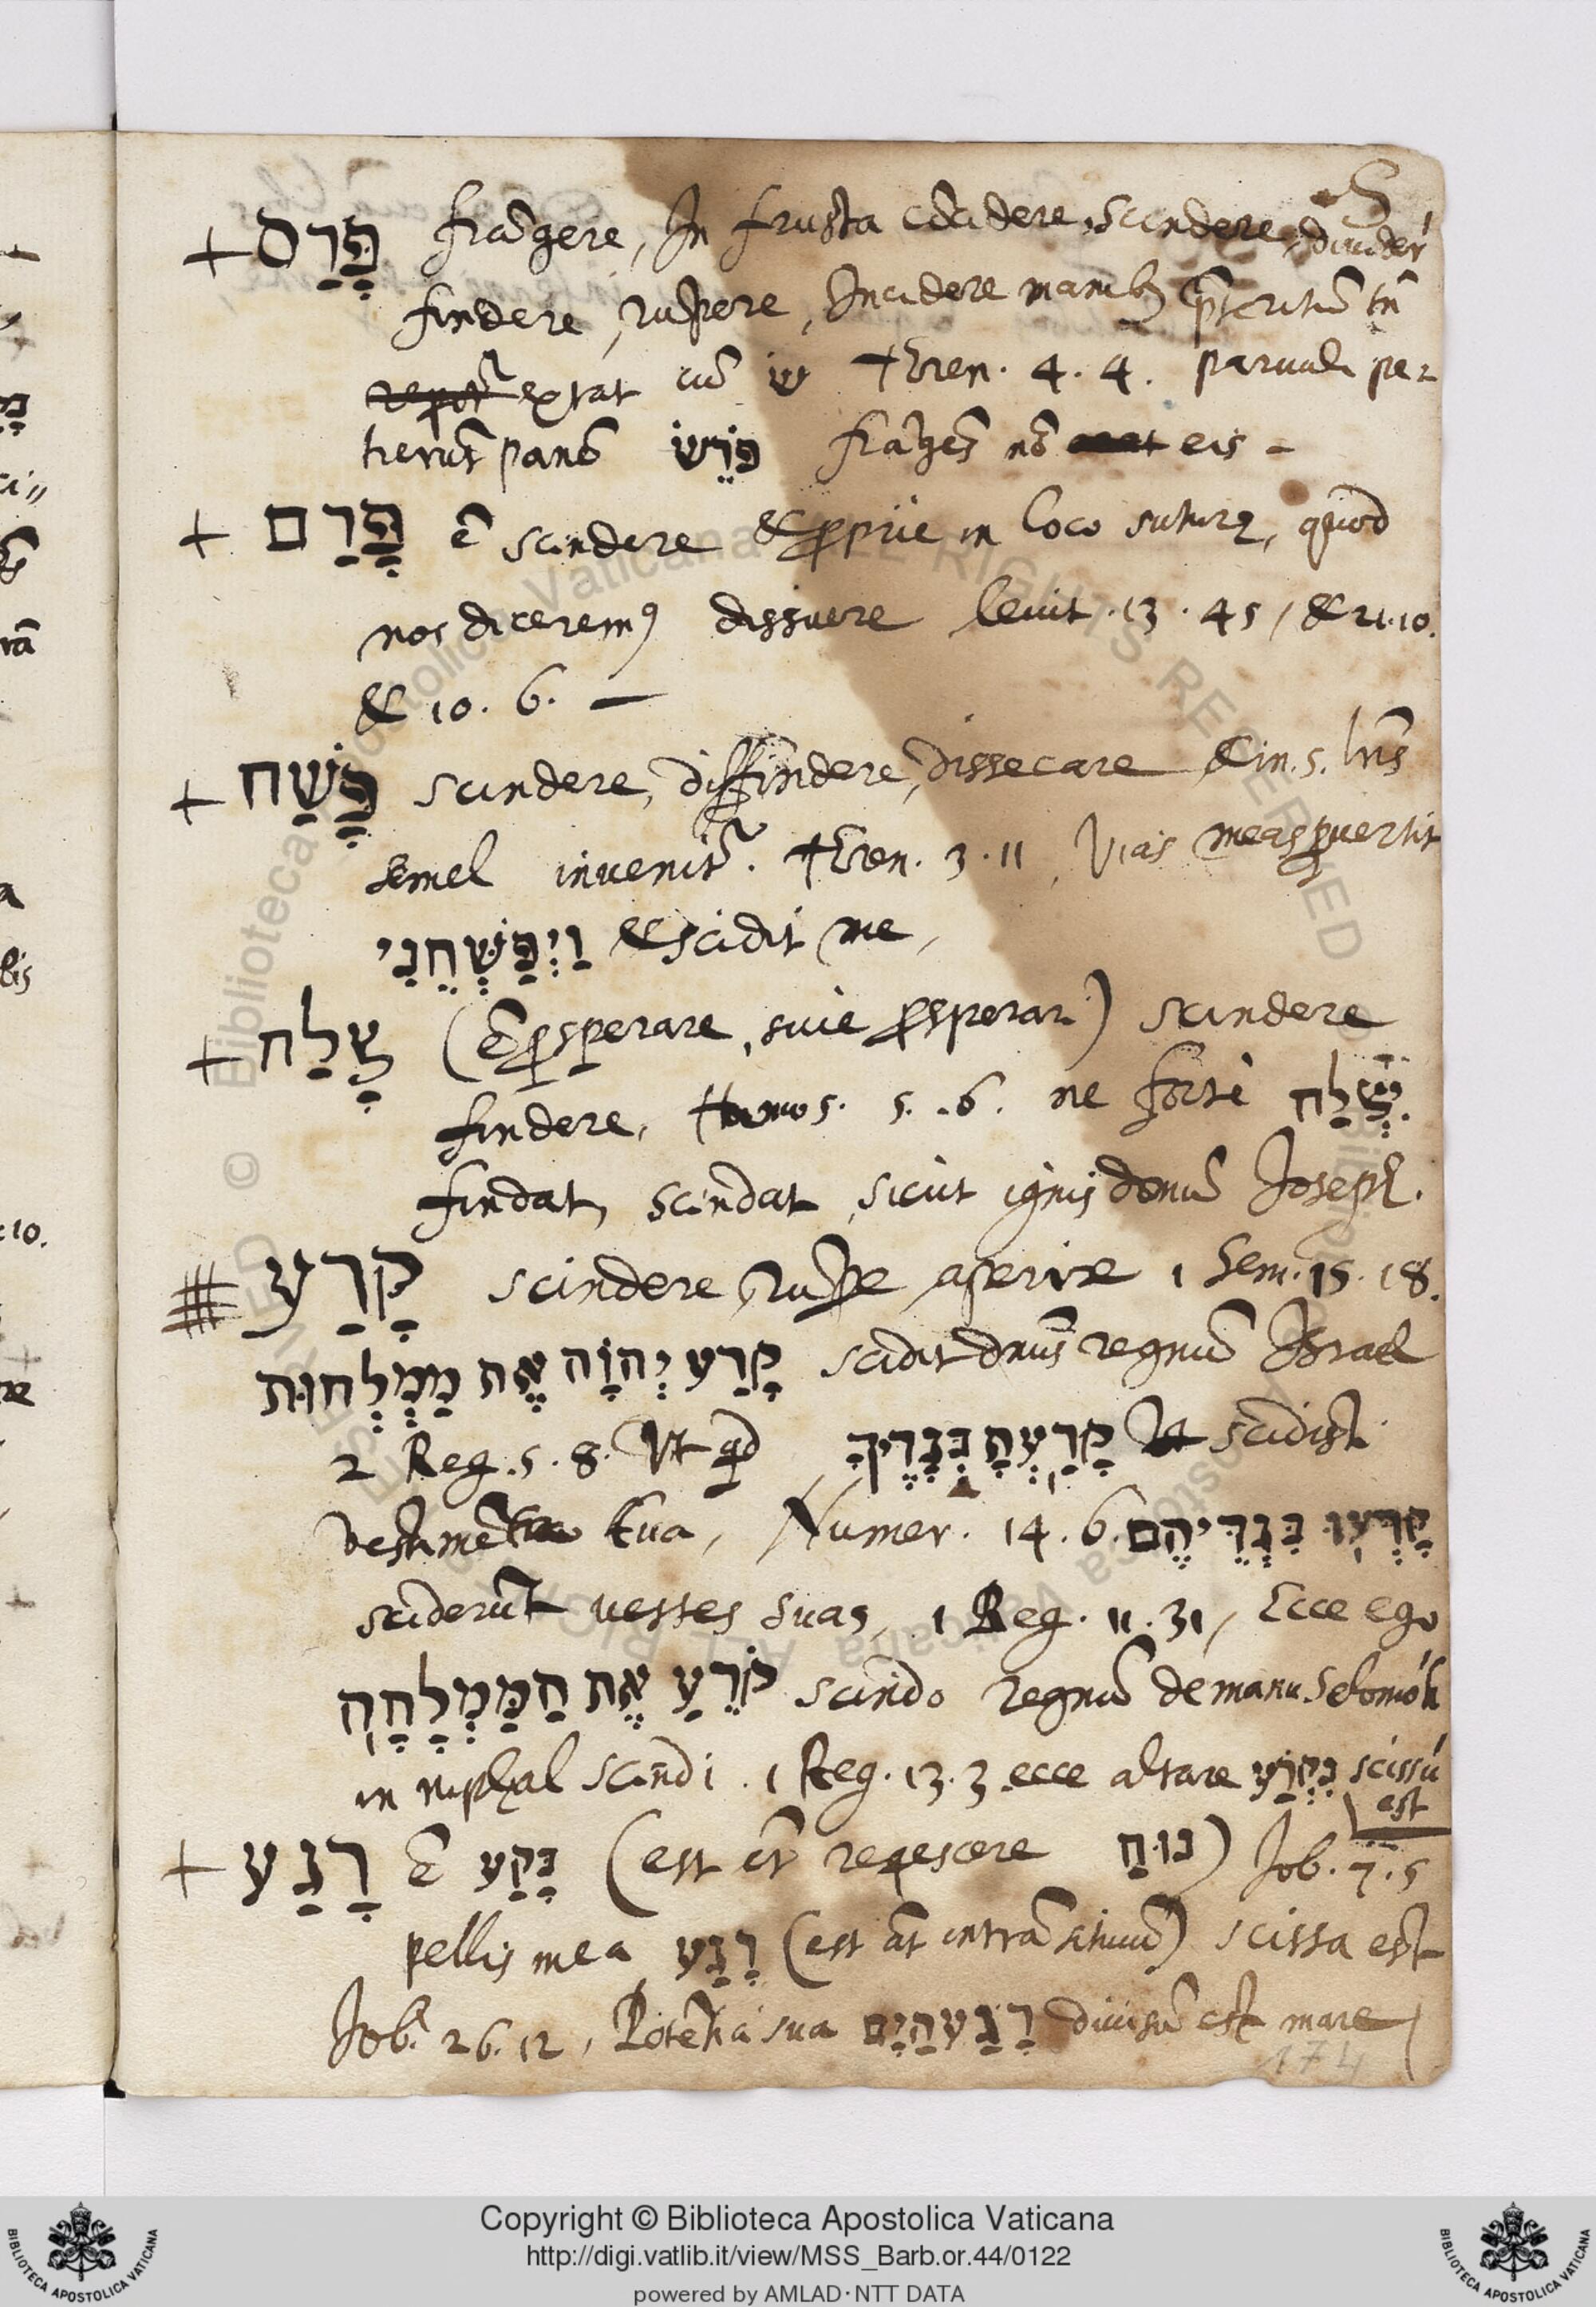 + פָּרַס frāgere, In frusta cādere, scindere, diuider
findere, rūpere, Incidere manib9 p̄teritū tn̄
extat cū שׁ Tren. 4. 4. paruuli pe-
tierūt panē פֹּרֵשׂ frāgēs nō eis -
+ פָּרַם ē scindere & proprie in loco suturę, quod
nos diceremꝰ dissuere leuit. 13. 45, & 21.10.
& 10. 6. —
+ פָּשַׁח scindere, diffindere, dissecare & in. s. lr̄is
semel invenit̄. Tren. 3. 11, Vias meas puertit
וַיְפַשְּׁחֵנִי & scidit me,
+ צָלַח (ē p̱sperare, siue prosperari) scindere
findere, Amos. 5. 6. ne forte יִצְלַח
findat, scindat, sicut ignis domū Joseph.
קָרַע scindere, rūpe aperire 1 Sem. 15. 18.
קָרַע יְהוָֹה אֶת מַמְלְחוּת scidit dn̄us regnū Israel
2 Reg. 5. 8. Vt qd קָרַעְתָּ בְּגָדֶיךָ scidisti
vestimēta tua, Numer. 14. 6. קָרְעוּ בִּגְדֵיהֶם
sciderūt uestes suas, 1 Reg. 11. 31, Ecce ego
קֹרֵעַ אֶת הַמַּמְלָחָה scindo regnū de manu Selomóh
in niphal scindi. 1 Reg. 13. 3 ecce altare נִקְרַע scissū
est
+ רָגַע ē בָּקַע (est et̄ reqescere נוּחַ) Job. 7. 5
pellis mea רָגַע (est āt intrāsitiuū) scissa est
Job. 26. 12, Potētia sua רָגַע הַיָּם diuisū est mare
174
Copyright © Biblioteca Apostolica Vaticana
http://digi.vatlib.it/view/MSS_Barb.or.44/0122
powered by AMLAD·NTT DATA